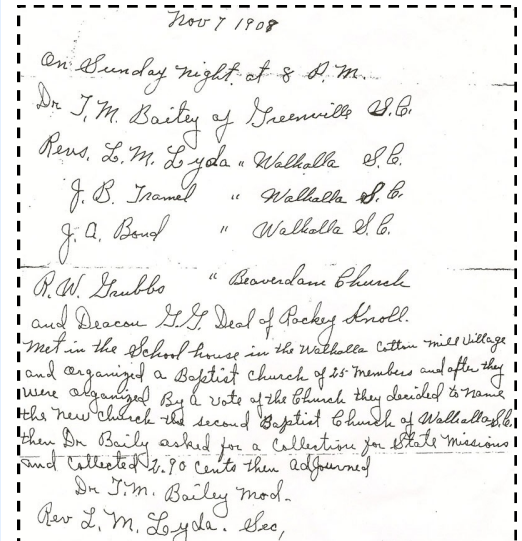 Nov 7 1908
On Sunday night at 8 P.M.
Dr T. M. Bailey of Greenville S.C.
Revs. L. M. Lyda " Walhalla S.C.
J. B. Tramel " Walhalla S.C.
J. A. Bond " Walhalla S.C.
R. W. Grubbs " Beaverdam Church
and Deacon G. G. Deal of Rockey Knoll.
Met in the School house in the Walhalla Cotton Mill Village
and organized a Baptist Church of 25 Members and after they
were organized By a vote of the Church they decided to name
the New Church the second Baptist Church of Walhalla, S.C.
then Dr Baily asked for a Collection for State Missions
and Collected 2.90 cents then adjourned
Dr T. M. Bailey Mod.
Rev L. M. Lyda. Sec,